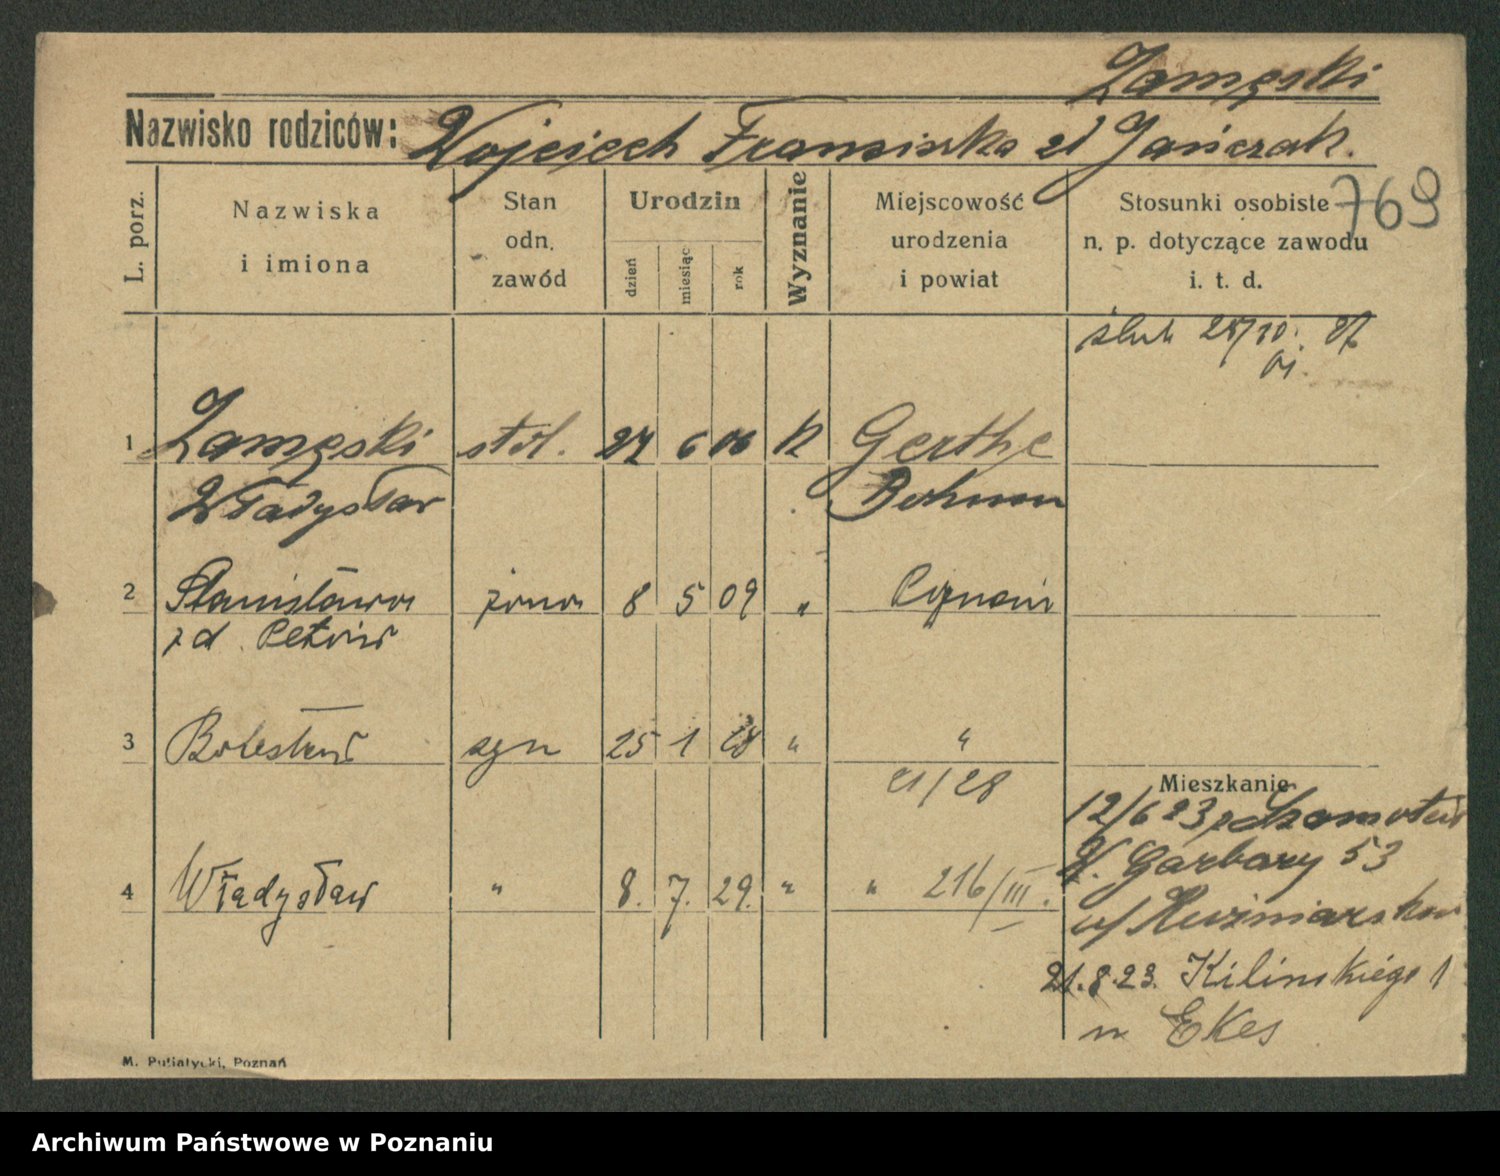 Zamęski
Nazwisko rodziców: Wojciech Franciszka zd Jańczak.
769
L. porz.
Nazwiska
i imiona
Stan
odn.
zawód
Urodzin
dzień
miesiąc
rok
Wyznanie
Miejscowość
urodzenia
i powiat
Stosunki osobiste
n. p. dotyczące zawodu
i. t. d.
ślub 25/10. 27
1 Zamęski stol. 27 6 06 k Gerthe
Władysław Bochum
2 Stanisława żona 8 5 09 " Poznań
zd.
3 Bolesław syn 25 1 28 " "
21/28
Mieszkanie
12/6 23 z Szamotuł
W. Garbary 53
4 Władysław " 8. 7. 29. " " 216/III.
u/
21.8.23. Kilińskiego 1
u Ekes
M. Putiatycki, Poznań
Archiwum Państwowe w Poznaniu